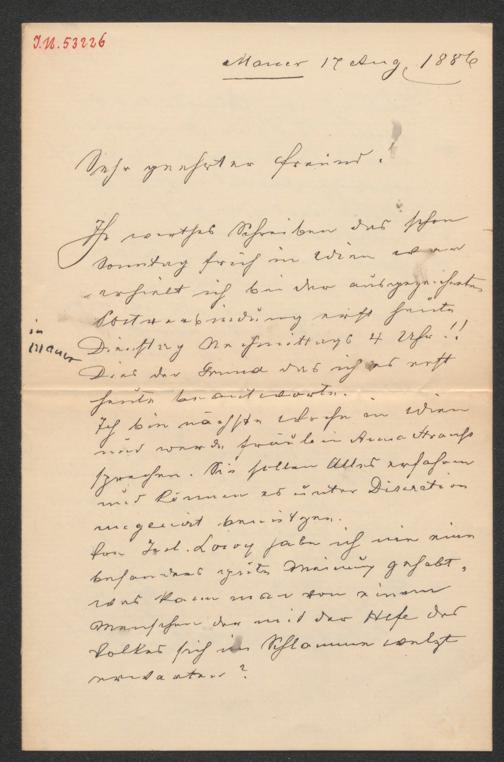 I.N. 53226
Mauer 17 Aug. 1886
Sehr geehrter Freund!
Ihr werthes Schreiben das schon
Sonntag früh in Wien war
erhielt ich bei der ausgezeichneten
Postverbindung erst heute
in Mauer
Dienstag Nachmittags 4 Uhr!!
Dies der Grund das ich es erst
heute beantworte.
Ich bin nächste Woche in Wien
und werde Fräulen Anna
sprechen. Sie sollen Alles erfahren
und können es unter Discretion
ungenirt benützen.
Von habe ich nie eine
besonders gute Meinung gehabt,
was kann man von einem
Menschen der mit der Hefe des
Volkes sich im Schlamme welzt
erwarten?